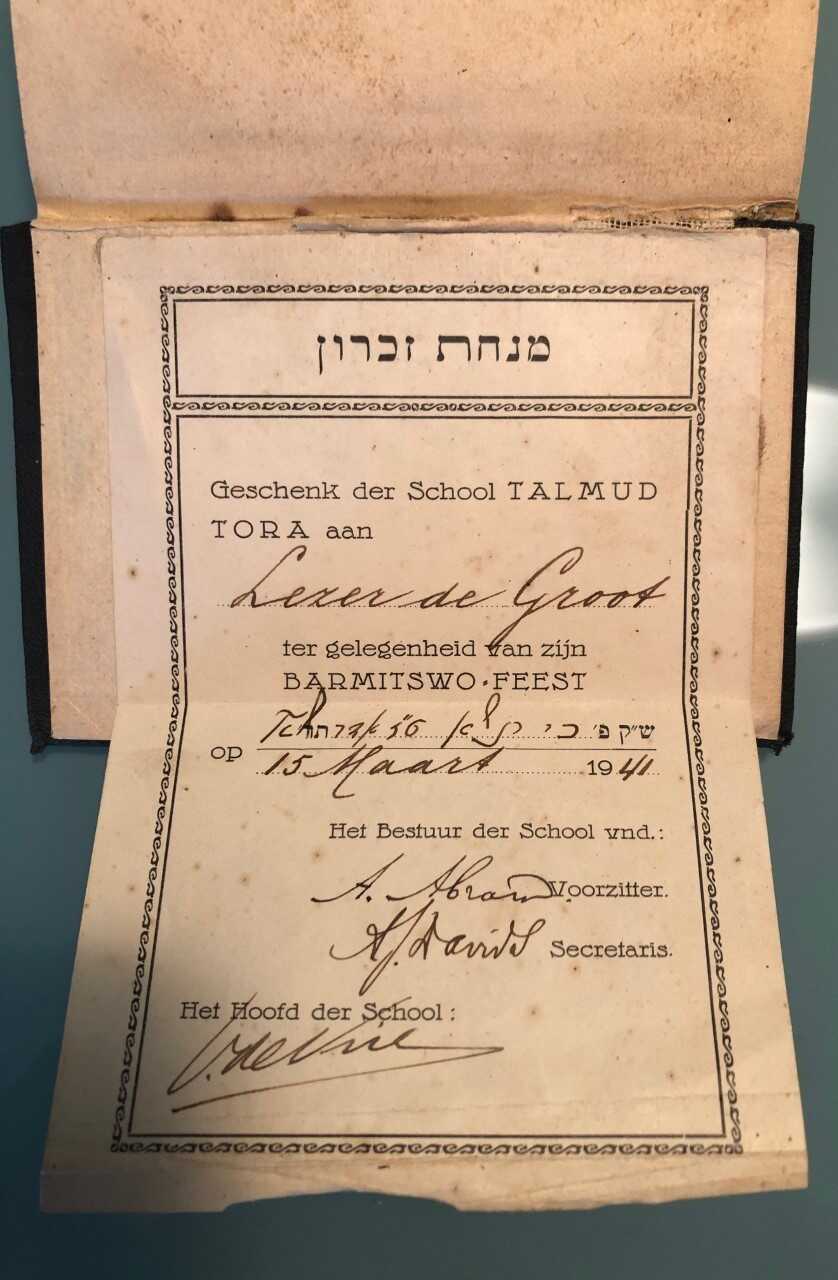 מנחת זכרון
Geschenk der School TALMUD
TORA aan
Lezer de Groot
ter gelegenheid van zijn
BARMITSWO-FEEST
ש״ק פ׳ כי תשא
op 15 Maart 1941
Het Bestuur der School vnd.:
A. Abram Voorzitter.
Davids Secretaris.
Het Hoofd der School: